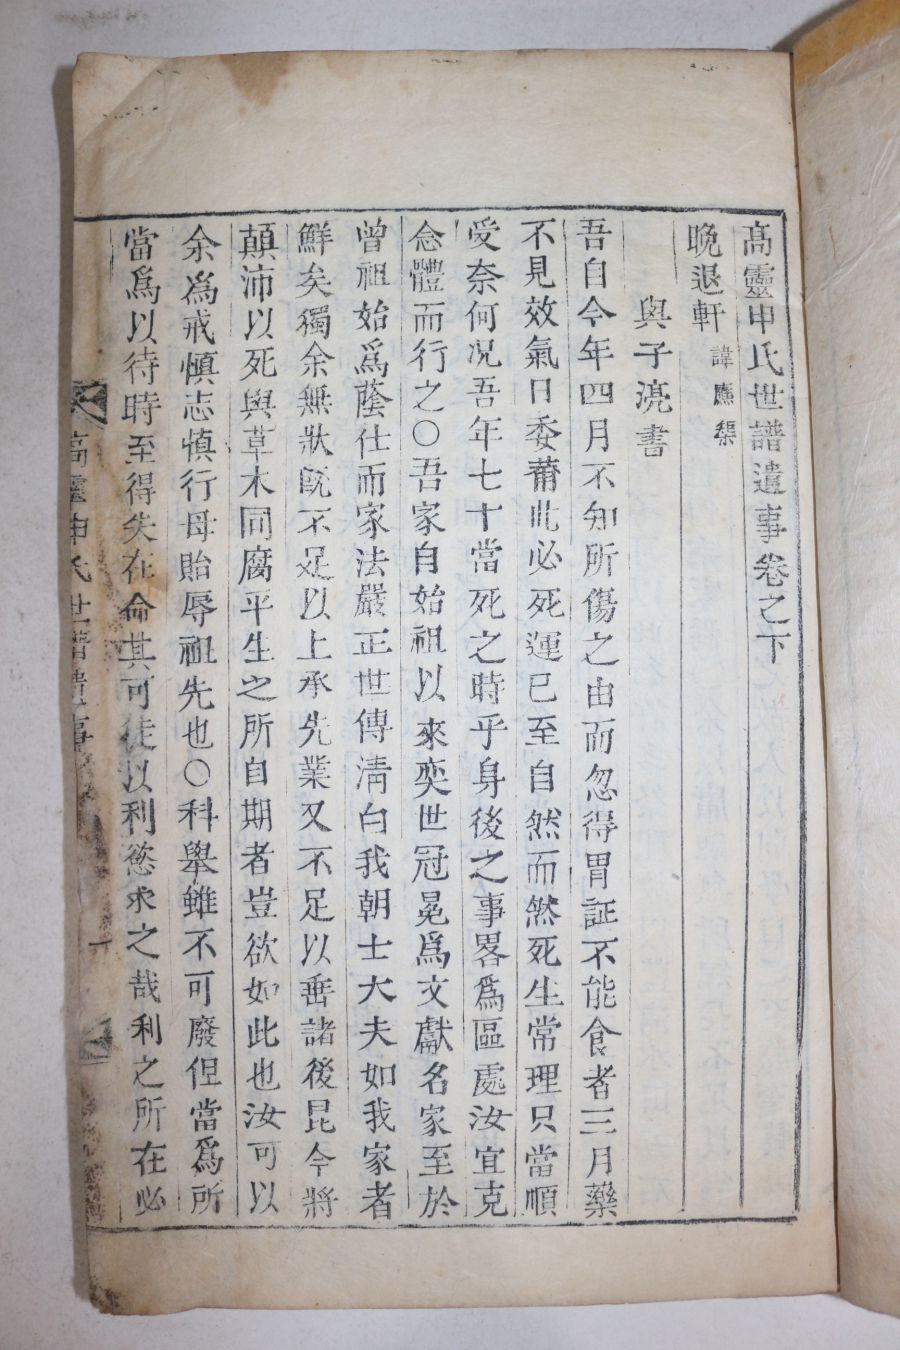 高靈申氏世譜遺事卷之下
晩退軒 諱應榘
與子湸書
吾自今年四月不知所傷之由而忽得胃証不能食者三月藥
不見效氣日委薾此必死運已至自然而然死生常理只當順
受奈何况吾年七十當死之時乎身後之事畧爲區處汝宜克
念體而行之○吾家自始祖以來奕世冠冕爲文獻名家至於
曾祖始爲蔭仕而家法嚴正世傳淸白我朝士大夫如我家者
鮮矣獨余無狀旣不足以上承先業又不足以垂諸後昆今將
顛沛以死與草木同腐平生之所自期者豈欲如此也汝可以
余爲戒愼志愼行毋貽辱祖先也○科擧雖不可廢但當爲所
當爲以待時至得失在命其可徒以利慾求之哉利之所在必
高靈申氏世譜遺事
一